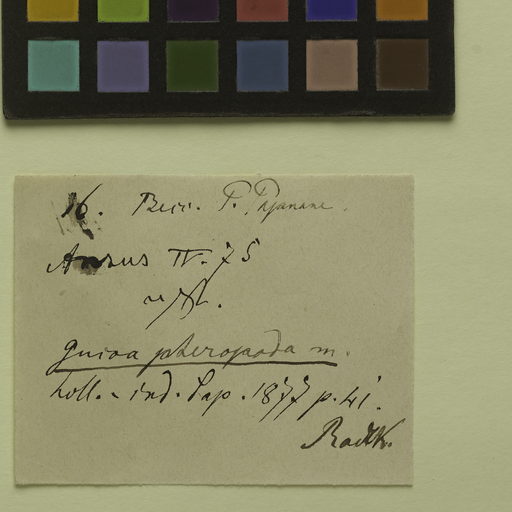 16. Becc. P. Papuane.
Ansus IV. 75
Guioa pteropoda m.
holl.-ind. Sap. 1877 p. 41.
Radlk.